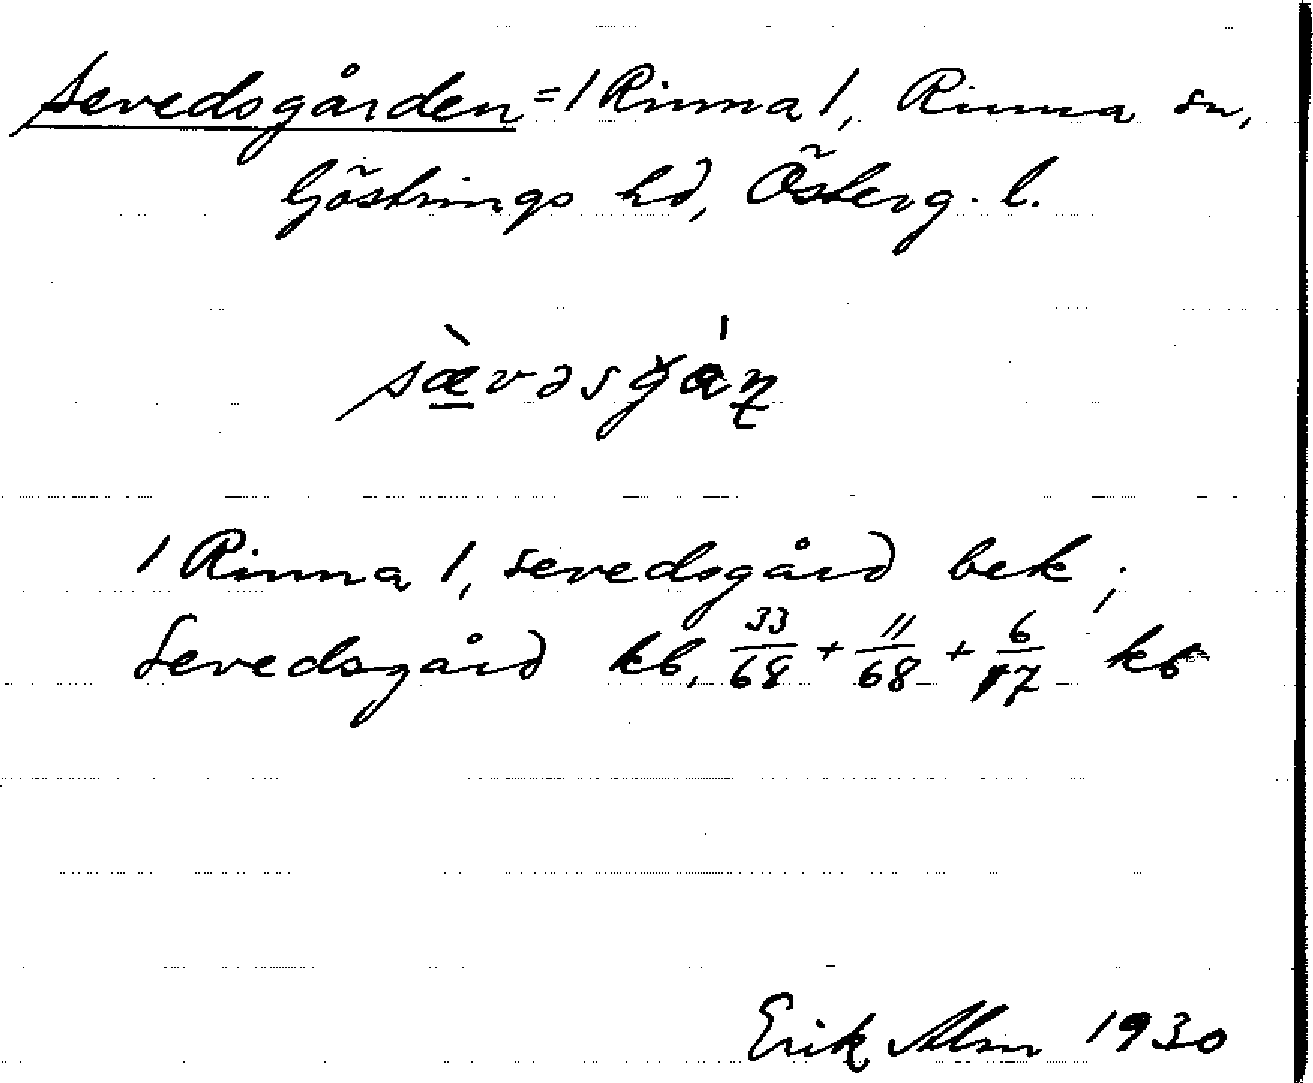 Sevedsgården = / Rinna /, Rinna sn,
Göstrings hd, Österg. l.
sæ̀vəsgán
/ Rinna /, Sevedsgård bek;
Sevedsgård kb, 33/68 + 11/68 + 6/17 kb
Erik Alm 1930